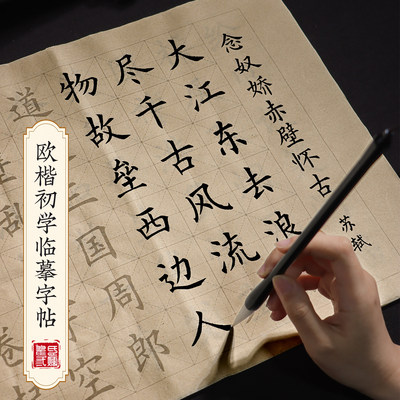 念奴娇赤壁怀古
苏轼
大江东去浪
尽千古风流
物故垒西边人
道
三国周郎
乱
空
卷
欧楷初学临摹字帖